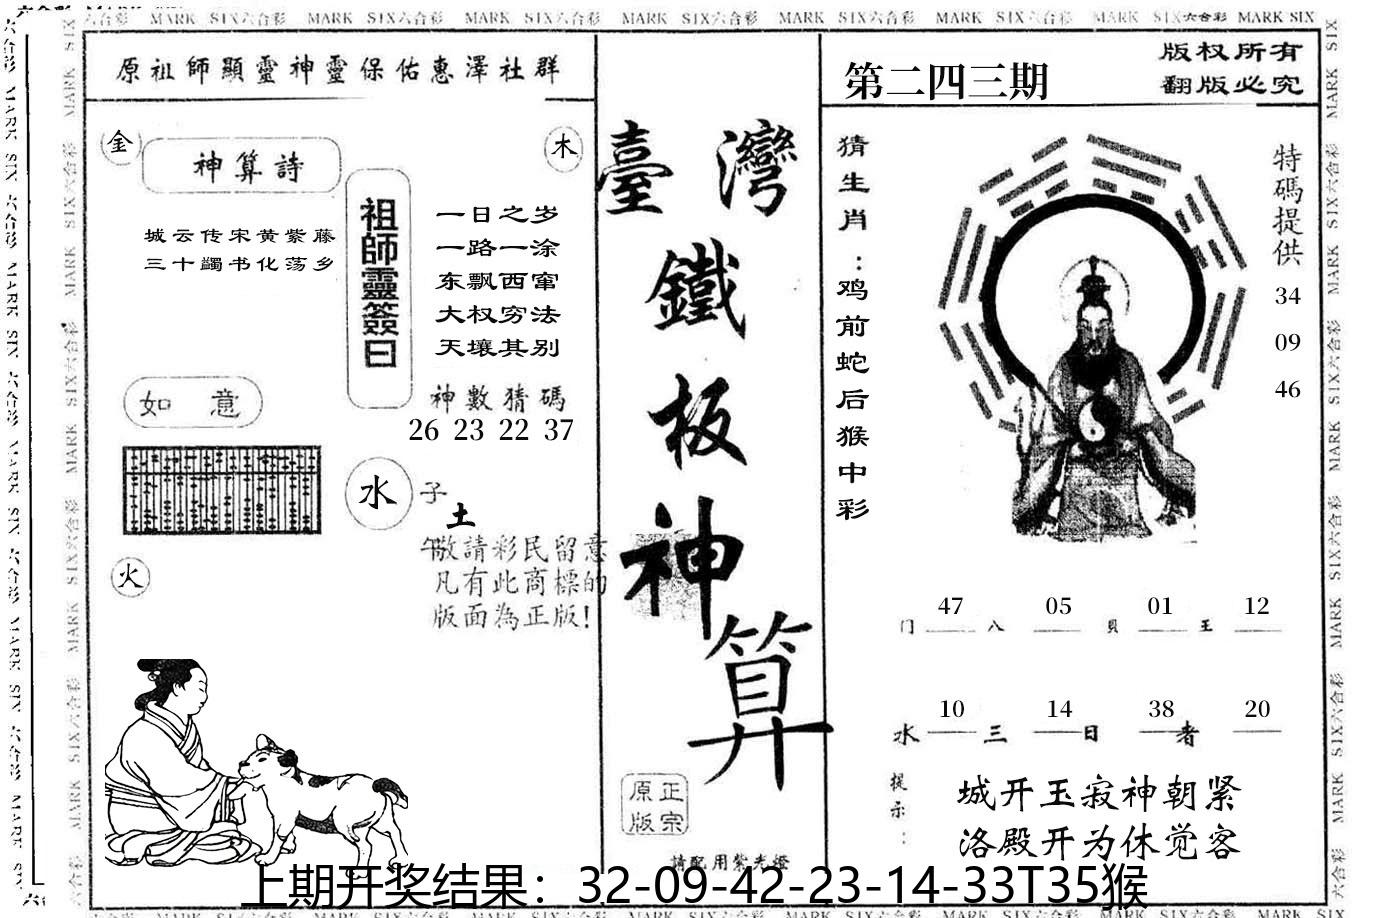 MARK SIX六合彩 MARK SIX六合彩 MARK SIX六合彩 MARK SIX六合彩 MARK SIX六合彩 MARK SIX六合彩 MARK SIX六合彩 MARK SIX
原祖師顯靈神靈保佑惠澤社群
金
神算詩
木
城云传宋黄紫藤
三十蠲书化荡乡
祖師靈簽曰
一日之岁
一路一涂
东飘西窜
大权穷法
天壤其别
神數猜碼
26 23 22 37
如 意
水
子
土
午
火
敬請彩民留意
凡有此商標的
版面為正版!
臺灣
鐵
板
神
算
原正
版宗
請配用紫光燈
第二四三期
版权所有
翻版必究
猜生肖:鸡前蛇后猴中彩
特碼提供
34
09
46
门 47 八 05 貝 01 王 12
水 10 三 14 日 38 者 20
提示:
城开玉寂神朝紧
洛殿开为休觉客
上期开奖结果：32-09-42-23-14-33T35猴